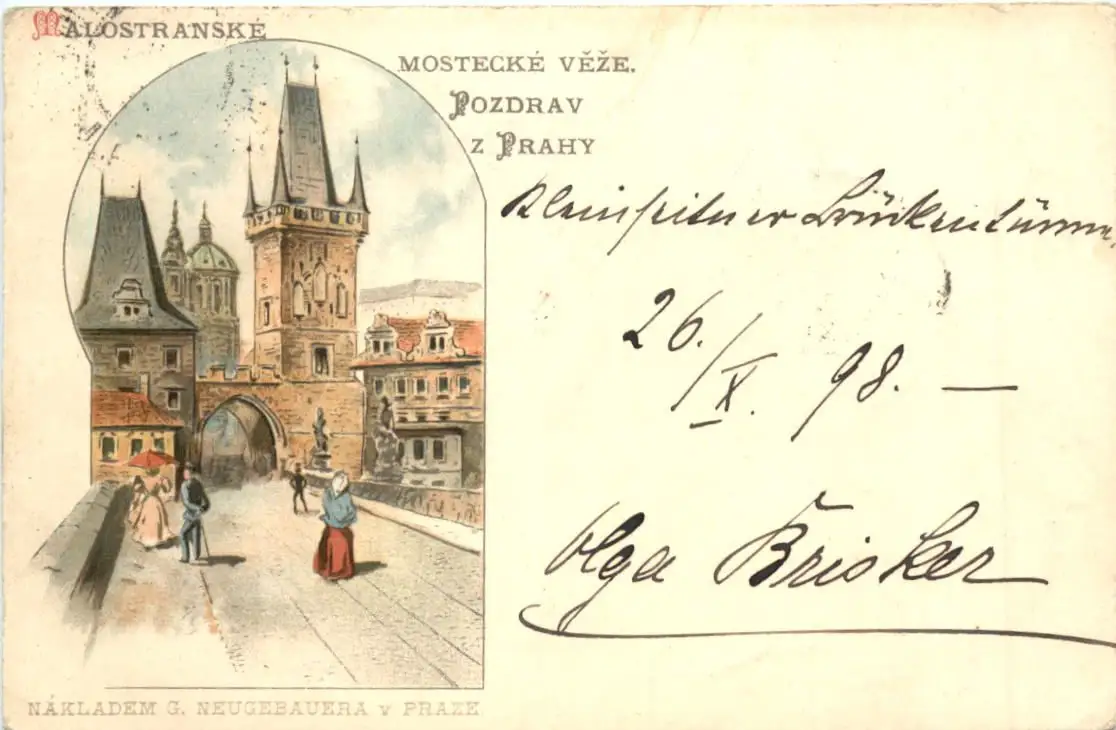 MALOSTRANSKÉ
MOSTECKÉ VĚŽE.
POZDRAV
Z PRAHY
Kleinseitner Brückentürme
26./X. 98. —
Olga Brisker
NÁKLADEM G. NEUGEBAUERA V PRAZE